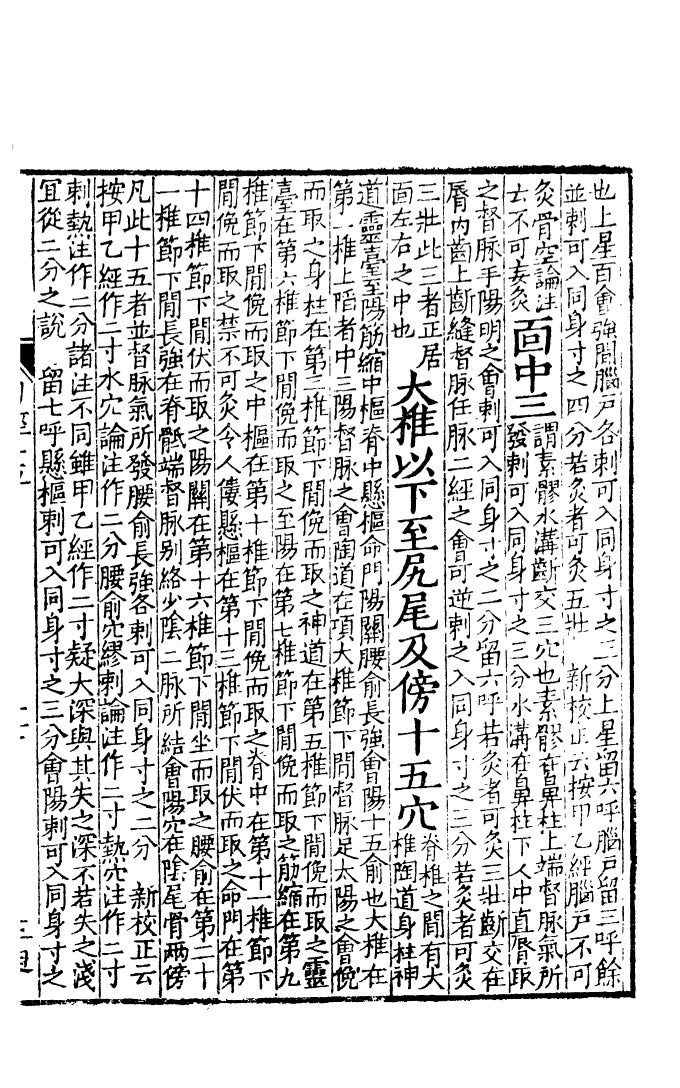 也上星百會強間腦戶各刺可入同身寸之三分上星留六呼腦戶留三呼餘
並刺可入同身寸之四分若灸者可灸五壯　新校正云按甲乙經腦戶不可
灸骨空論注
去不可妄灸
面中三
謂素髎水溝齗交三穴也素髎在鼻柱上端督脉氣所
發刺可入同身寸之三分水溝在鼻柱下人中直脣取
之督脉手陽明之會刺可入同身寸之二分留六呼若灸者可灸三壯齗交在
脣内齒上齗縫督脉任脉二經之會可逆刺之入同身寸之三分若灸者可灸
三壯此三者正居
面左右之中也
大椎以下至尻尾及傍十五穴
脊椎之間有大
椎陶道身柱神
道靈臺至陽筋縮中樞脊中懸樞命門陽關腰俞長強會陽十五俞也大椎在
第一椎上陷者中三陽督脉之會陶道在項大椎節下間督脉足太陽之會俛
而取之身柱在第三椎節下間俛而取之神道在第五椎節下間俛而取之靈
臺在第六椎節下間俛而取之至陽在第七椎節下間俛而取之筋縮在第九
椎節下間俛而取之中樞在第十椎節下間俛而取之脊中在第十一椎節下
間俛而取之禁不可灸令人僂懸樞在第十三椎節下間伏而取之命門在第
十四椎節下間伏而取之陽關在第十六椎節下間坐而取之腰俞在第二十
一椎節下間長強在脊骶端督脉别絡少陰二脉所結會陽穴在陰尾骨兩傍
凡此十五者並督脉氣所發腰俞長強各刺可入同身寸之二分　新校正云
按甲乙經作二寸水穴論注作二分腰俞穴繆刺論注作二寸熱穴注作二寸
刺熱注作二分諸注不同雖甲乙經作二寸疑大深與其失之深不若失之淺
宜從二分之說　留七呼懸樞刺可入同身寸之三分會陽刺可入同身寸之